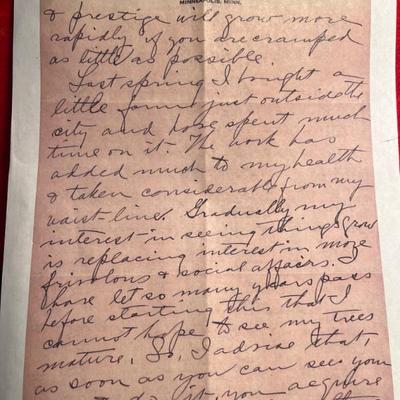 MINNEAPOLIS, MINN.
& prestige will grow more
rapidly if you are cramped
as little as possible.
Last spring I bought a
little farm just outside the
city and have spent much
time on it. The work has
added much to my health
& taken considerable from my
waist-line. Gradually my
interest in seeing things grow
is replacing interest in more
frivolous & social affairs. I
have let so many years pass
before starting this that I
cannot hope to see my trees
mature. So, I advise that,
as soon as you can see your
do it, you acquire